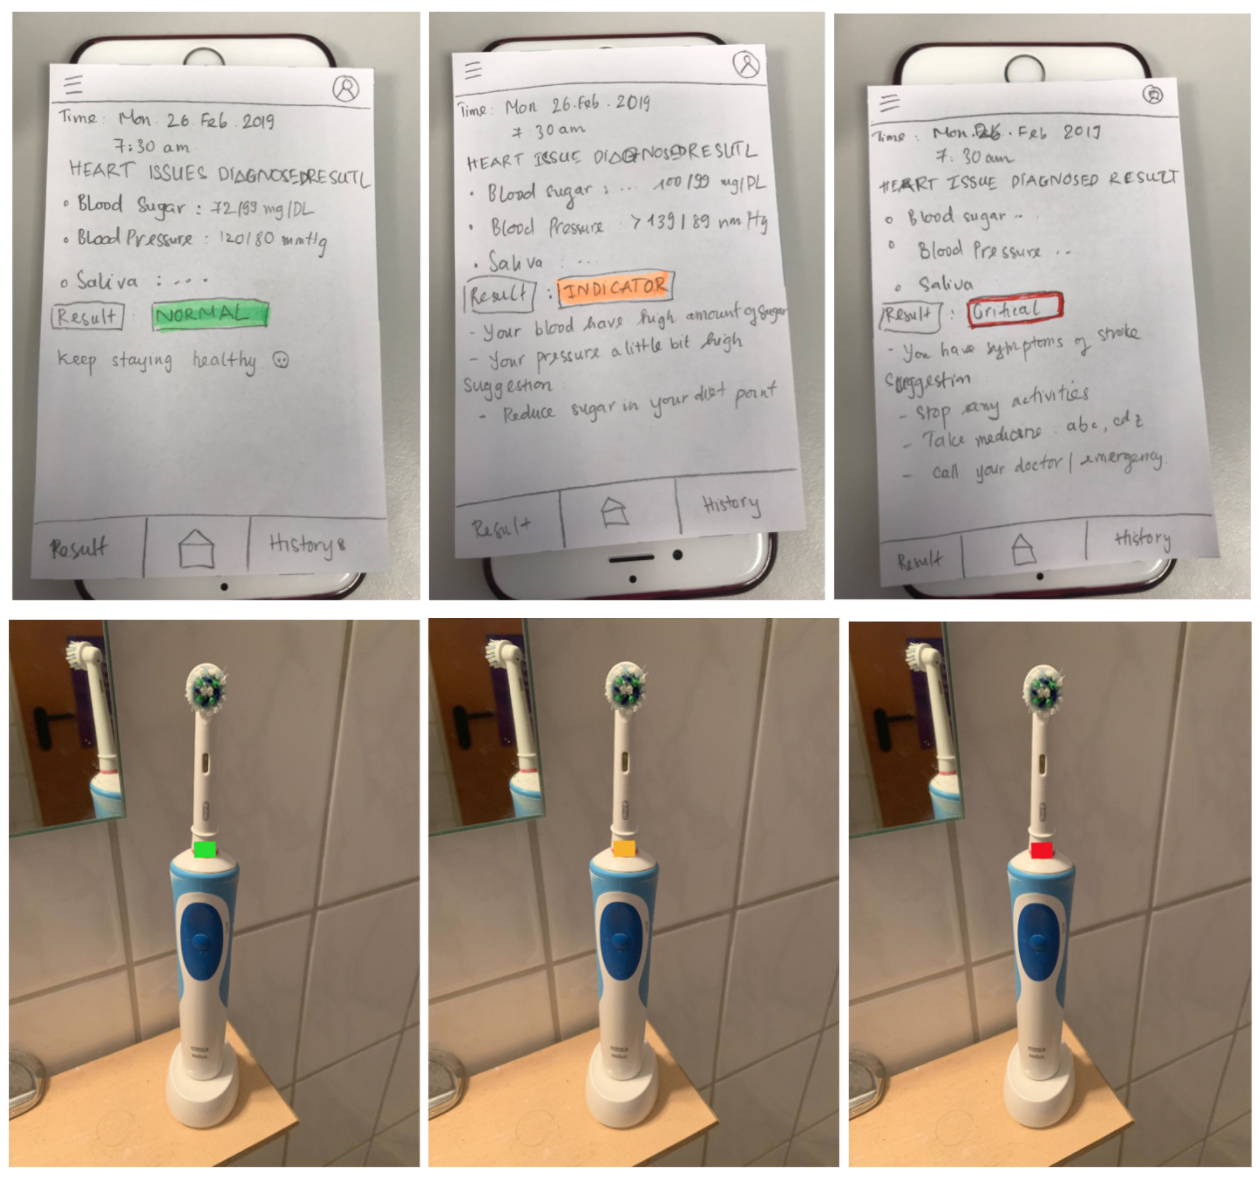 Time: Mon. 26. Feb. 2019
7:30 am
HEART ISSUES DIAGNOSED RESUTL
• Blood Sugar : 72/99 mg/DL
• Blood Pressure : 120/80 mmHg
• Saliva : ...
Result : NORMAL
Keep staying healthy
Result
History
Time: Mon 26. Feb. 2019
7 30 am
HEART ISSUE DIAGNOSED RESUTL
• Blood sugar : ... 100/99 mg/DL
• Blood Pressure >139/89 mm Hg
• Saliva : ...
Result : INDICATOR
- Your blood have high amount of sugar
- Your pressure a little bit high
Suggestion
- Reduce sugar in your diet point
Result
History
Time: Mon. 26. Feb 2019
7: 30 am
HEART ISSUE DIAGNOSED RESULT
• Blood sugar ..
• Blood Pressure ...
• Saliva
Result : Critical
- You have symptoms of stroke
Suggestion
- Stop any activities
- Take medicine abc, cdz
- Call your doctor / emergency
Result
History